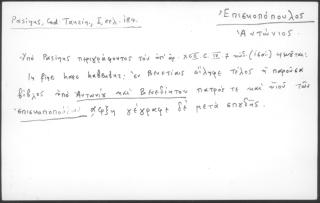 Pasinus, Cod. Taurin., I, σελ. 184.
Ἐπισκοπόπουλος
Ἀντώνιος.
Ὑπὸ Pasinus περιγράφοντος τὸν ὑπ' ἀρ. XCII. C. IV. 7 κώδ. (ις' αἰ.)
In fine haec habentur: ἐν Βενετίαις εἴληφε τέλος ἡ παροῦσα
βίβλος ὑπὸ Ἀντωνίου καὶ Βενεδίκτου πατρός τε καὶ υἱοῦ τῶν
ἐπισκοποπούλων γέγραφε δὲ μετὰ σπουδῆς.